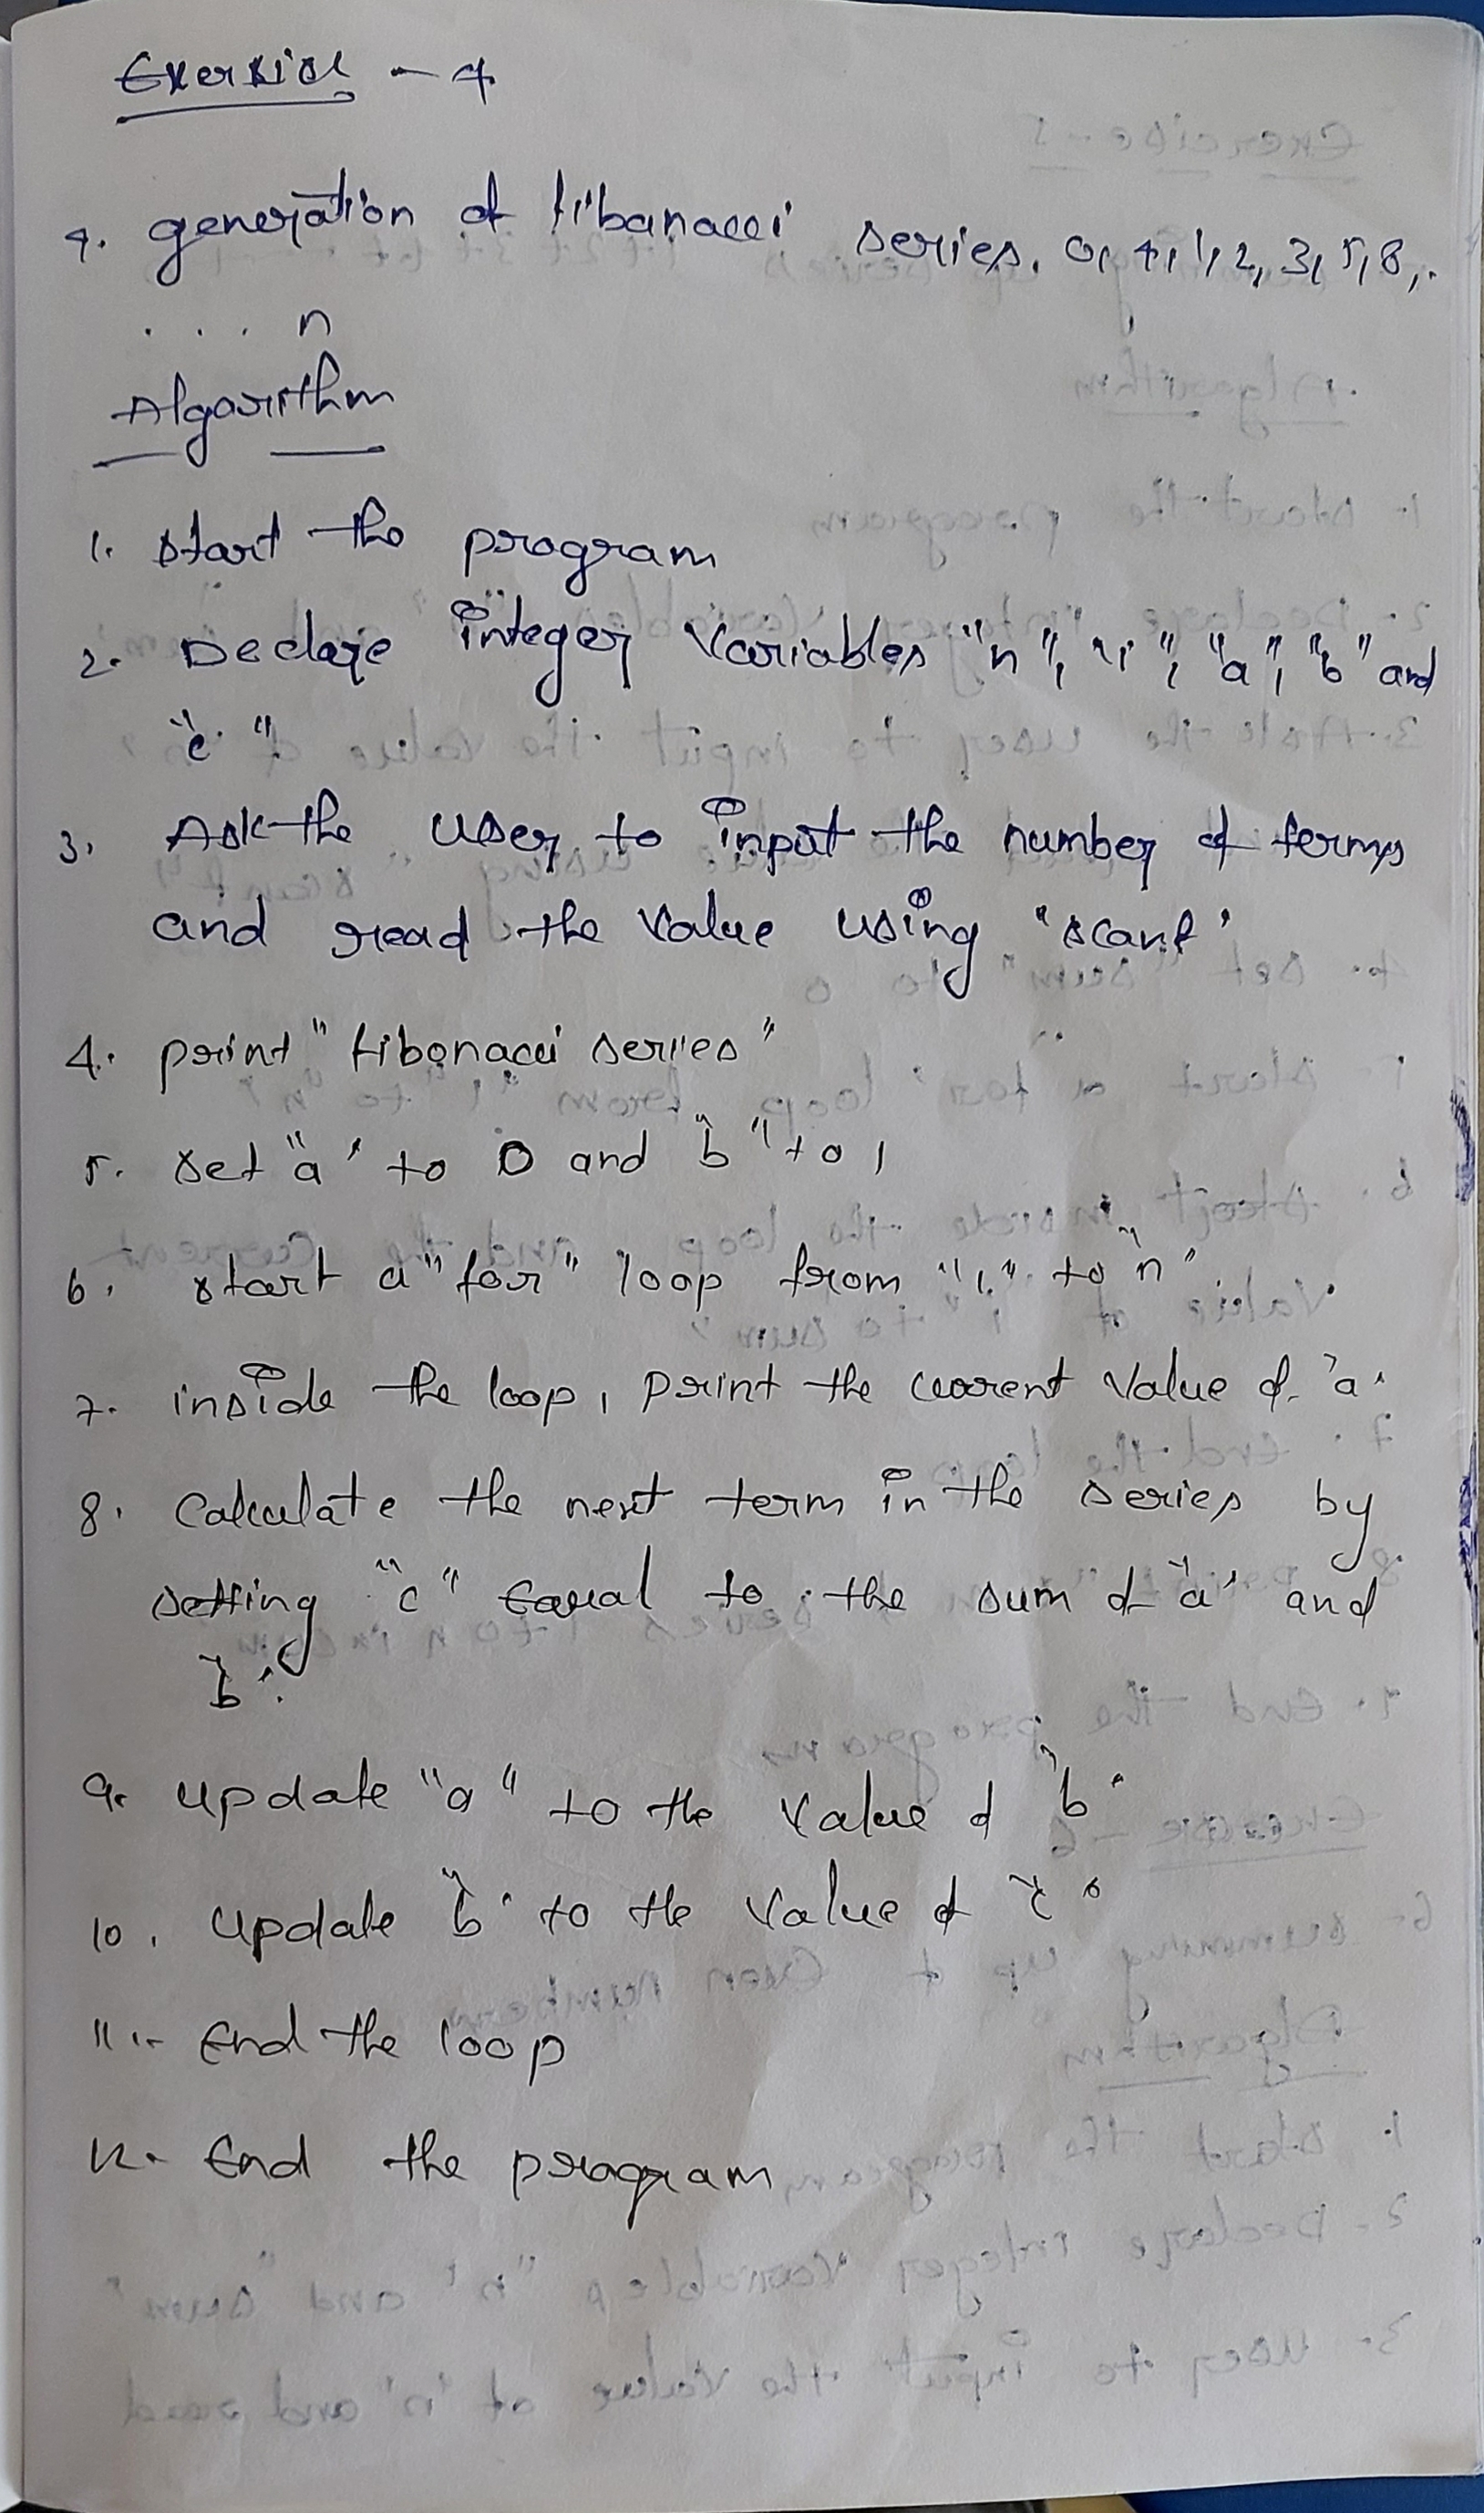 Exersice - 4
4. generation of fibanacci series. 0, 1, 1, 2, 3, 5, 8, .
. . . . n
Algorithm
1. Start the program
2. Declare integer variables "n", "i", "a", "b" and
"c"
3. Ask the user to input the number of terms
and read the value using "scanf"
4. print "fibonacci series"
5. Set "a" to 0 and "b" to 1
6. start a "for" loop from "1" to "n".
7. inside the loop, print the current value of "a"
8. Calculate the next term in the series by
setting "c" Equal to the sum of "a" and
"b".
9. Update "a" to the value of "b"
10. Update "b" to the value of "c"
11. End the loop
12. End the program